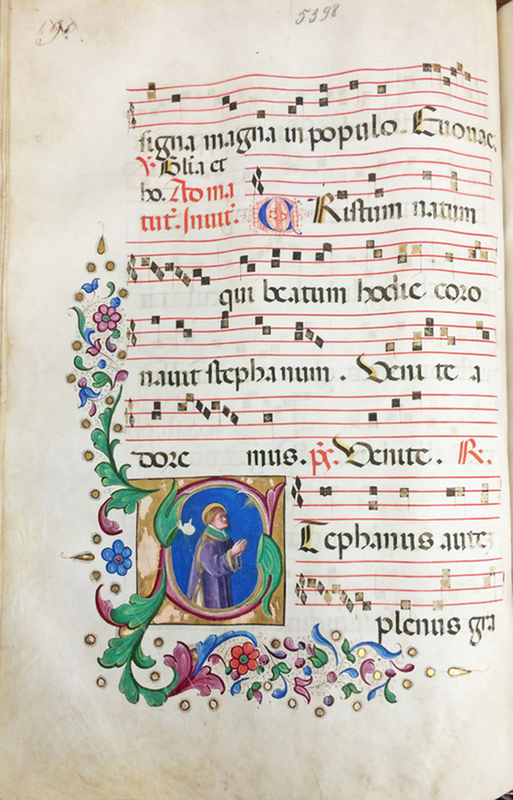 5398
signa magna in populo. Euouae.
℣. Gl̄ia et
ho. Ad ma
tut̄. Inuit̄. CRistum natum
qui beatum hodie coro
nauit stephanum. Veni te a
dore mus. p̄s. Venite. ℟.
STephanus autē
plenus gra